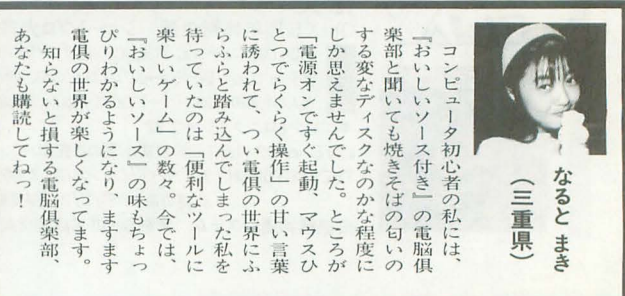 なると まき
（三重県）
コンピュータ初心者の私には、
『おいしいソース付き』の電脳倶
楽部と聞いても焼きそばの匂いの
する変なディスクなのかな程度に
しか思えませんでした。ところが
「電源オンですぐ起動、マウスひ
とつでらくらく操作」の甘い言葉
に誘われて、つい電倶の世界にふ
らふらと踏み込んでしまった私を
待っていたのは「便利なツールに
楽しいゲーム」の数々。今では、
『おいしいソース』の味もちょっ
ぴりわかるようになり、ますます
電倶の世界が楽しくなってます。
知らないと損する電脳倶楽部、
あなたも購読してねっ！